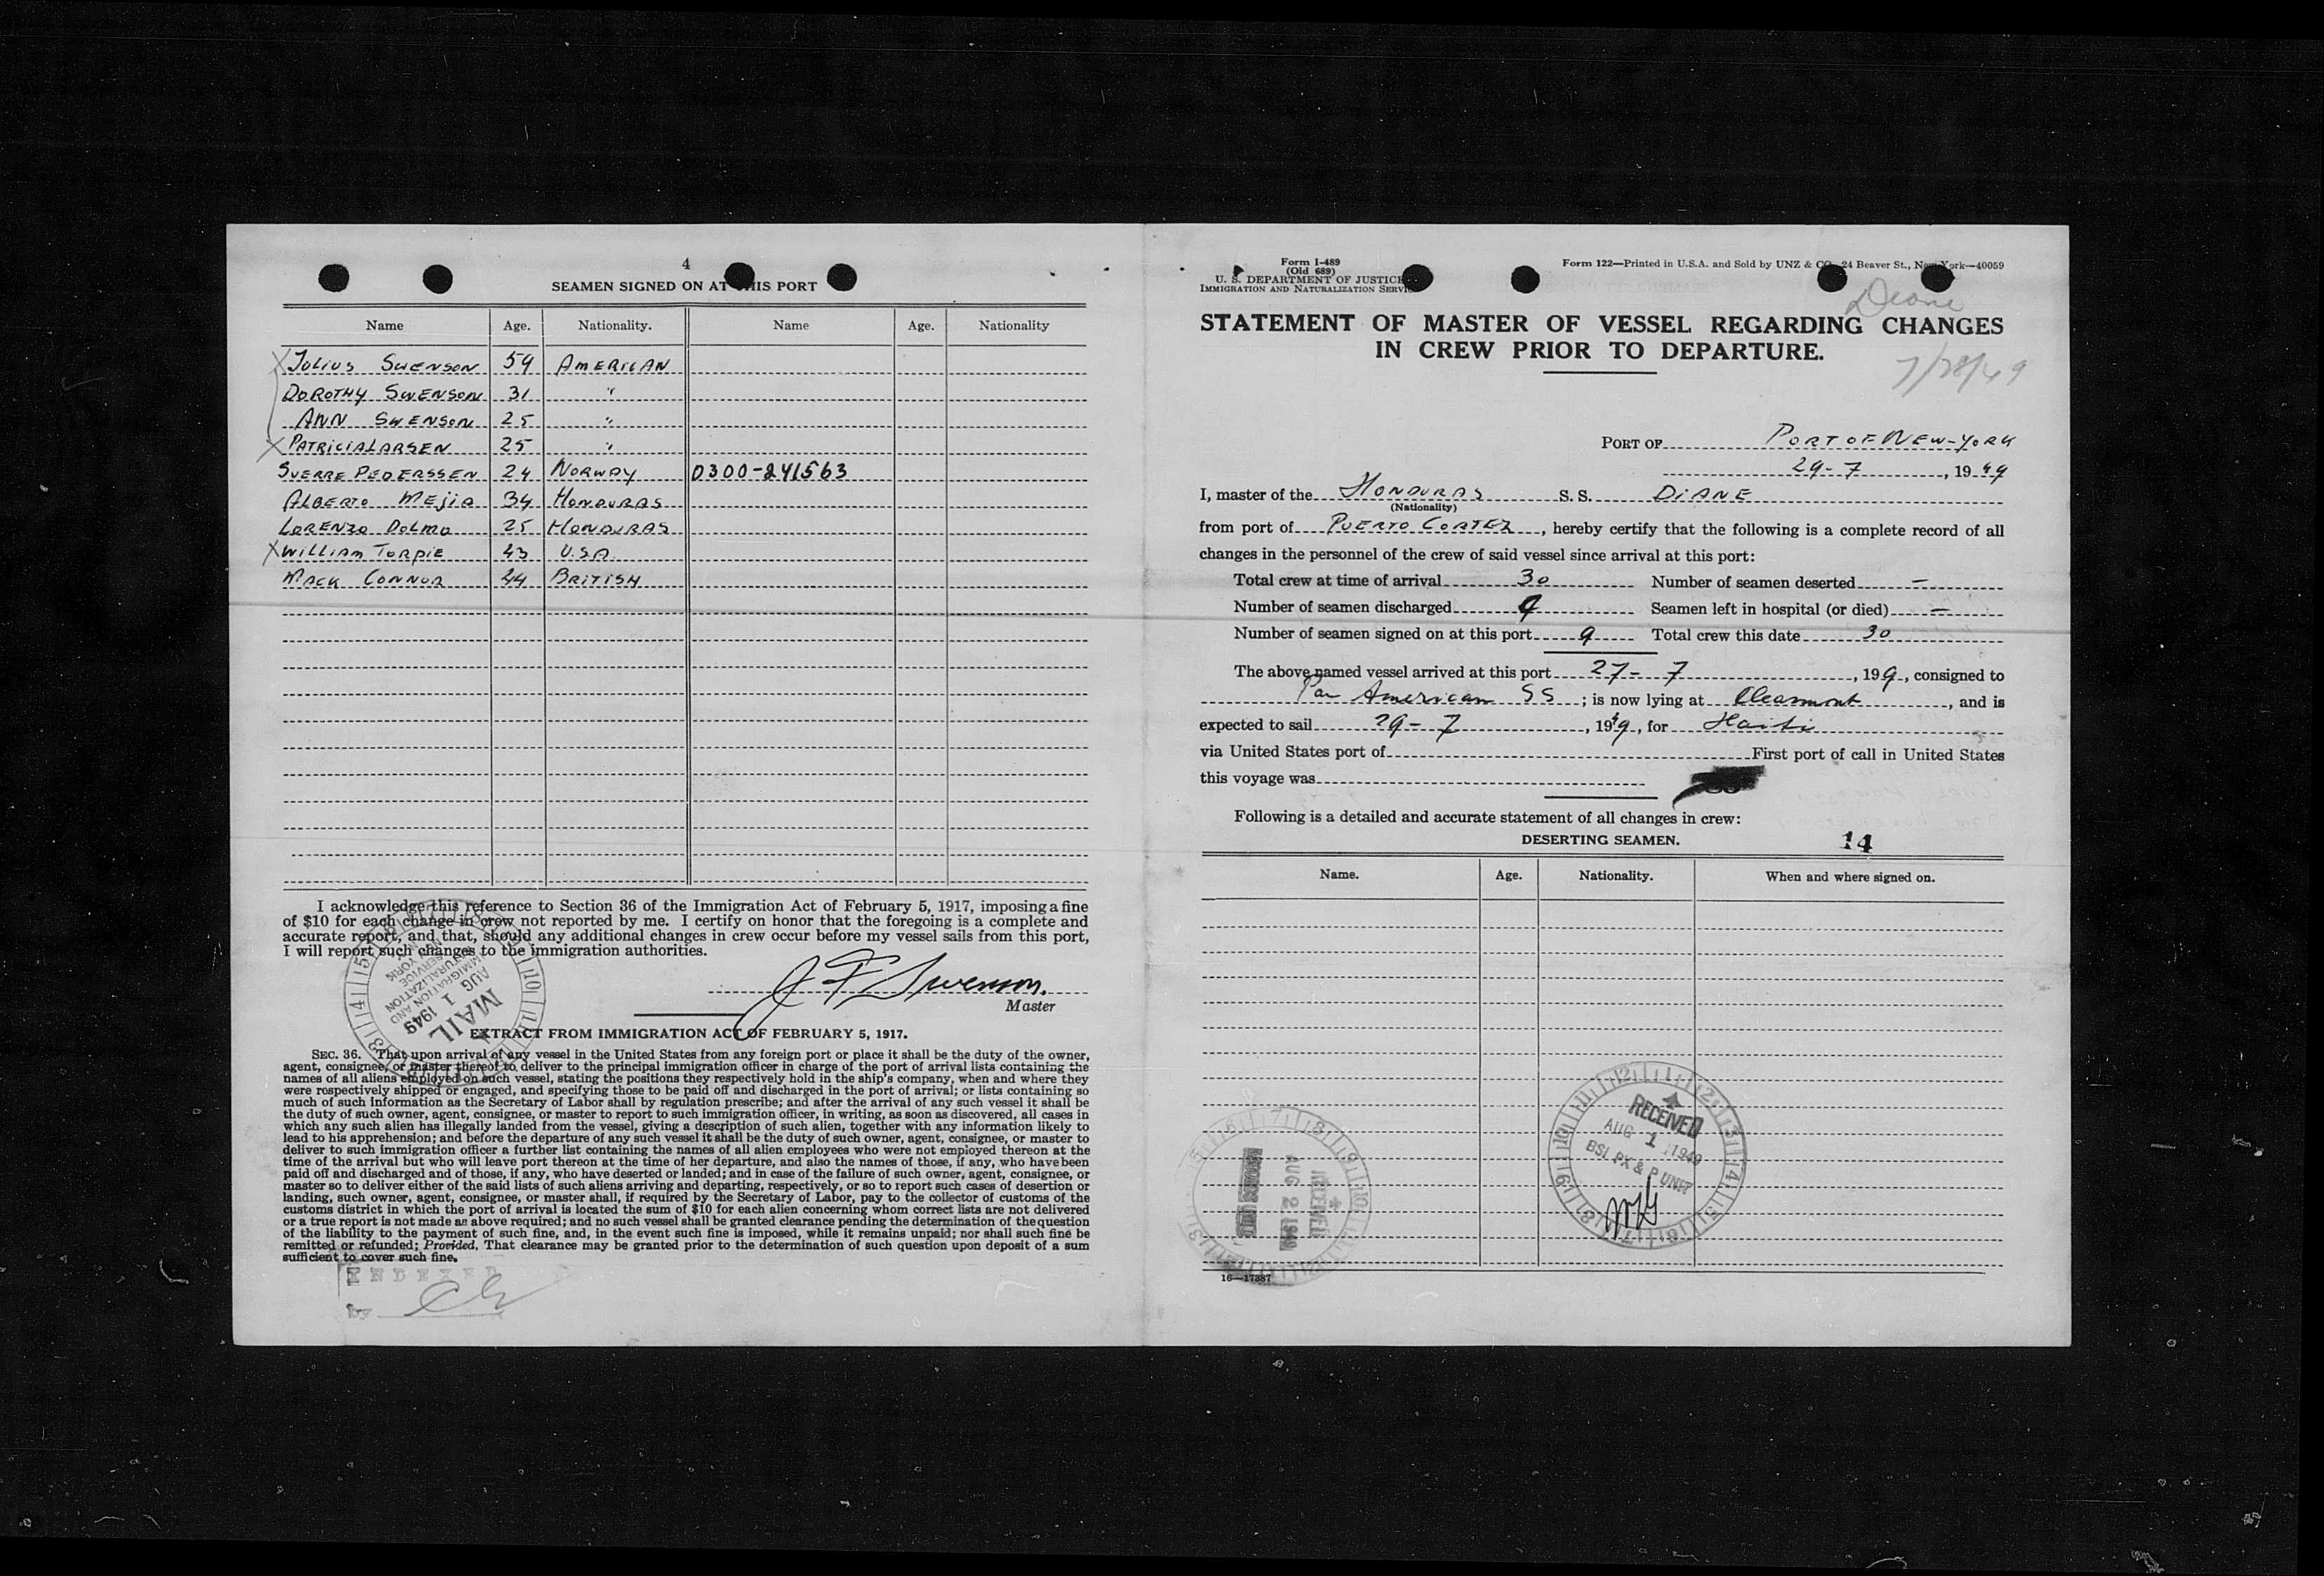 4
SEAMEN SIGNED ON AT THIS PORT
Name Age. Nationality. Name Age. Nationality
X JULIUS SWENSON 59 AMERICAN
DOROTHY SWENSON 31 "
ANN SWENSON 25 "
X PATRICIA LARSEN 25 "
SVERRE PEDERSSEN 24 NORWAY 0300-241563
ALBERTO MEJIA 34 HONDURAS
LORENZO DOLMO 25 HONDURAS
X WILLIAM TORPIE 43 U.S.A.
MACK CONNOR 44 BRITISH
I acknowledge this reference to Section 36 of the Immigration Act of February 5, 1917, imposing a fine
of $10 for each change in crew not reported by me. I certify on honor that the foregoing is a complete and
accurate report, and that, should any additional changes in crew occur before my vessel sails from this port,
I will report such changes to the immigration authorities.
J F Swenson.
Master
IMMIGRATION AND NATURALIZATION SERVICE NEW YORK
AUG 1 1949
MAIL
EXTRACT FROM IMMIGRATION ACT OF FEBRUARY 5, 1917.
SEC. 36. That upon arrival of any vessel in the United States from any foreign port or place it shall be the duty of the owner,
agent, consignee, or master thereof to deliver to the principal immigration officer in charge of the port of arrival lists containing the
names of all aliens employed on such vessel, stating the positions they respectively hold in the ship's company, when and where they
were respectively shipped or engaged, and specifying those to be paid off and discharged in the port of arrival; or lists containing so
much of such information as the Secretary of Labor shall by regulation prescribe; and after the arrival of any such vessel it shall be
the duty of such owner, agent, consignee, or master to report to such immigration officer, in writing, as soon as discovered, all cases in
which any such alien has illegally landed from the vessel, giving a description of such alien, together with any information likely to
lead to his apprehension; and before the departure of any such vessel it shall be the duty of such owner, agent, consignee, or master to
deliver to such immigration officer a further list containing the names of all alien employees who were not employed thereon at the
time of the arrival but who will leave port thereon at the time of her departure, and also the names of those, if any, who have been
paid off and discharged and of those, if any, who have deserted or landed; and in case of the failure of such owner, agent, consignee, or
master so to deliver either of the said lists of such aliens arriving and departing, respectively, or so to report such cases of desertion or
landing, such owner, agent, consignee, or master shall, if required by the Secretary of Labor, pay to the collector of customs of the
customs district in which the port of arrival is located the sum of $10 for each alien concerning whom correct lists are not delivered
or a true report is not made as above required; and no such vessel shall be granted clearance pending the determination of the question
of the liability to the payment of such fine, and, in the event such fine is imposed, while it remains unpaid; nor shall such fine be
remitted or refunded; Provided, That clearance may be granted prior to the determination of such question upon deposit of a sum
sufficient to cover such fine.
INDEXED
by
Form I-489
(Old 689)
U. S. DEPARTMENT OF JUSTICE
IMMIGRATION AND NATURALIZATION SERVICE
Form 122—Printed in U.S.A. and Sold by UNZ & CO. 24 Beaver St., New York—40059
Diane
STATEMENT OF MASTER OF VESSEL REGARDING CHANGES
IN CREW PRIOR TO DEPARTURE.
7/28/49
PORT OF PORT OF NEW-YORK
29-7, 1949
I, master of the HONDURAS S. S. DIANE
(Nationality)
from port of PUERTO CORTEZ, hereby certify that the following is a complete record of all
changes in the personnel of the crew of said vessel since arrival at this port:
Total crew at time of arrival 30 Number of seamen deserted —
Number of seamen discharged 9 Seamen left in hospital (or died) —
Number of seamen signed on at this port 9 Total crew this date 30
The above named vessel arrived at this port 27-7, 199, consigned to
Pan American SS; is now lying at Claremont, and is
expected to sail 29-7, 1949, for Haiti
via United States port of First port of call in United States
this voyage was
Following is a detailed and accurate statement of all changes in crew:
DESERTING SEAMEN. 14
Name. Age. Nationality. When and where signed on.
RECEIVED
AUG 1 1949
BSI, PX & P UNIT
RECEIVED
AUG 2 1949
16—17387